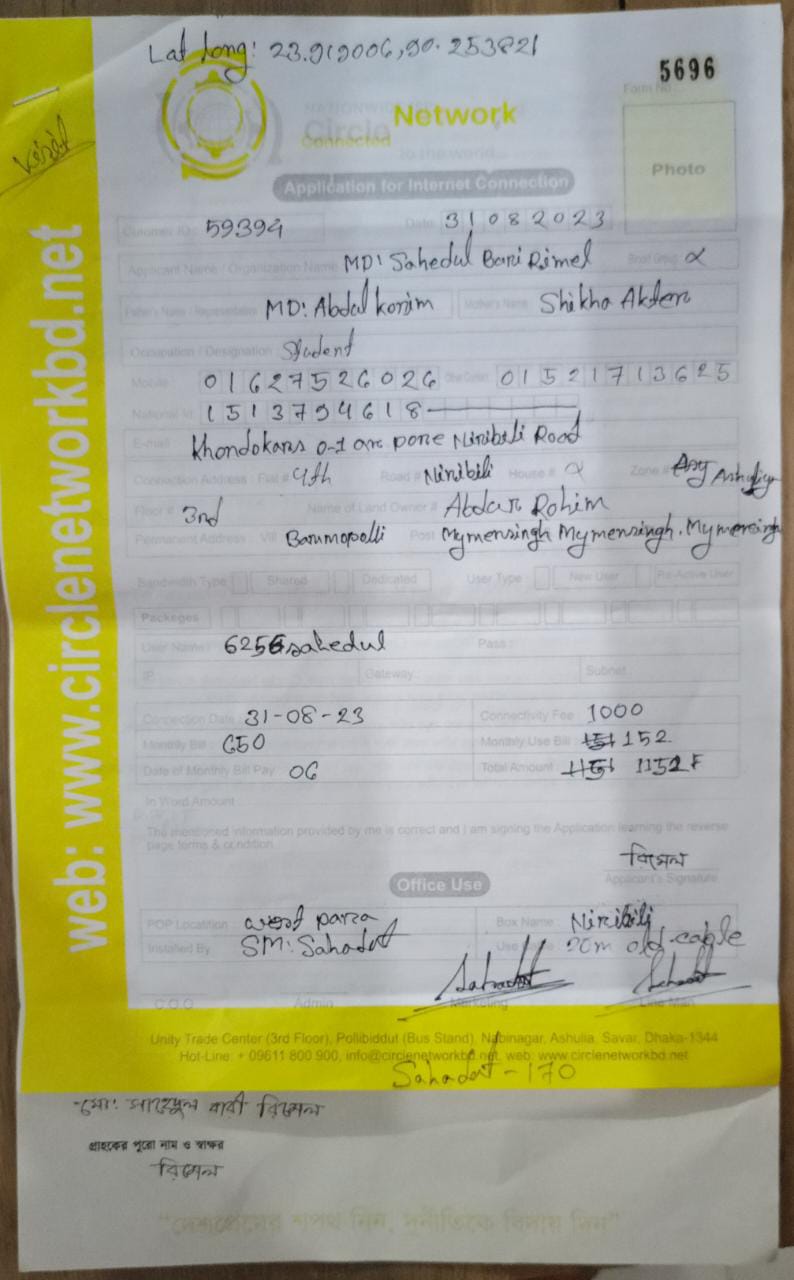 Lat long: 23.919006,90.253821
5696
Form No:
NATIONWIDE
Circle Network
Connected to the world...
Visit
Photo
Application for Internet Connection
Customer ID: 59394 Date: 31082023
Applicant Name / Organization Name MD: Sahedul Bari Rimel Blood Group:
Father's Name / Representative MD: Abdul korim Mother's Name Shikha Akter
Occupation / Designation: Student
Mobile: 01627526026 01521713625
National Id: 1513794618
E-mail: Khondokars Niribili Road
Connection Address : Flat # 4th Road # Niribili House # Zone # Ashuliya
Floor # 3rd Name of Land Owner # Abdur Rohim
Permanent Address : Vill Post Mymensingh Mymensingh. Mymensingh
Bandwidth Type Shared Dedicated User Type New User Re-Active User
Packages
User Name: 6256sahedul Pass:
IP: Gateway: Subnet:
Connection Date: 31-08-23 Connectivity Fee: 1000
Monthly Bill: 650 Monthly Use Bill: 151 152
Date of Monthly Bill Pay: 06 Total Amount: 1151 1152
In Word Amount :
The mentioned information provided by me is correct and I am signing the Application learning the reverse
page terms & condition.
রিমেল
Applicant's Signature
Office Use
POP Locatition: west para Box Name: Niribili
Installed By: SM: Sahadat Use 20m old cable
Sahadat Sahadat
C.O.O Admin Marketing Line Man
Unity Trade Center (3rd Floor), Pollibiddut (Bus Stand), Nabinagar, Ashulia, Savar, Dhaka-1344
Hot-Line: + 09611 800 900, info@circlenetworkbd.net, web: www.circlenetworkbd.net
Sahadat - 170
web: www.circlenetworkbd.net
মো: সাহেদুল বারী রিমেল
গ্রাহকের পুরো নাম ও স্বাক্ষর
রিমেল
"দেশপ্রেমের শপথ নিন, দুর্নীতিকে বিদায় দিন"